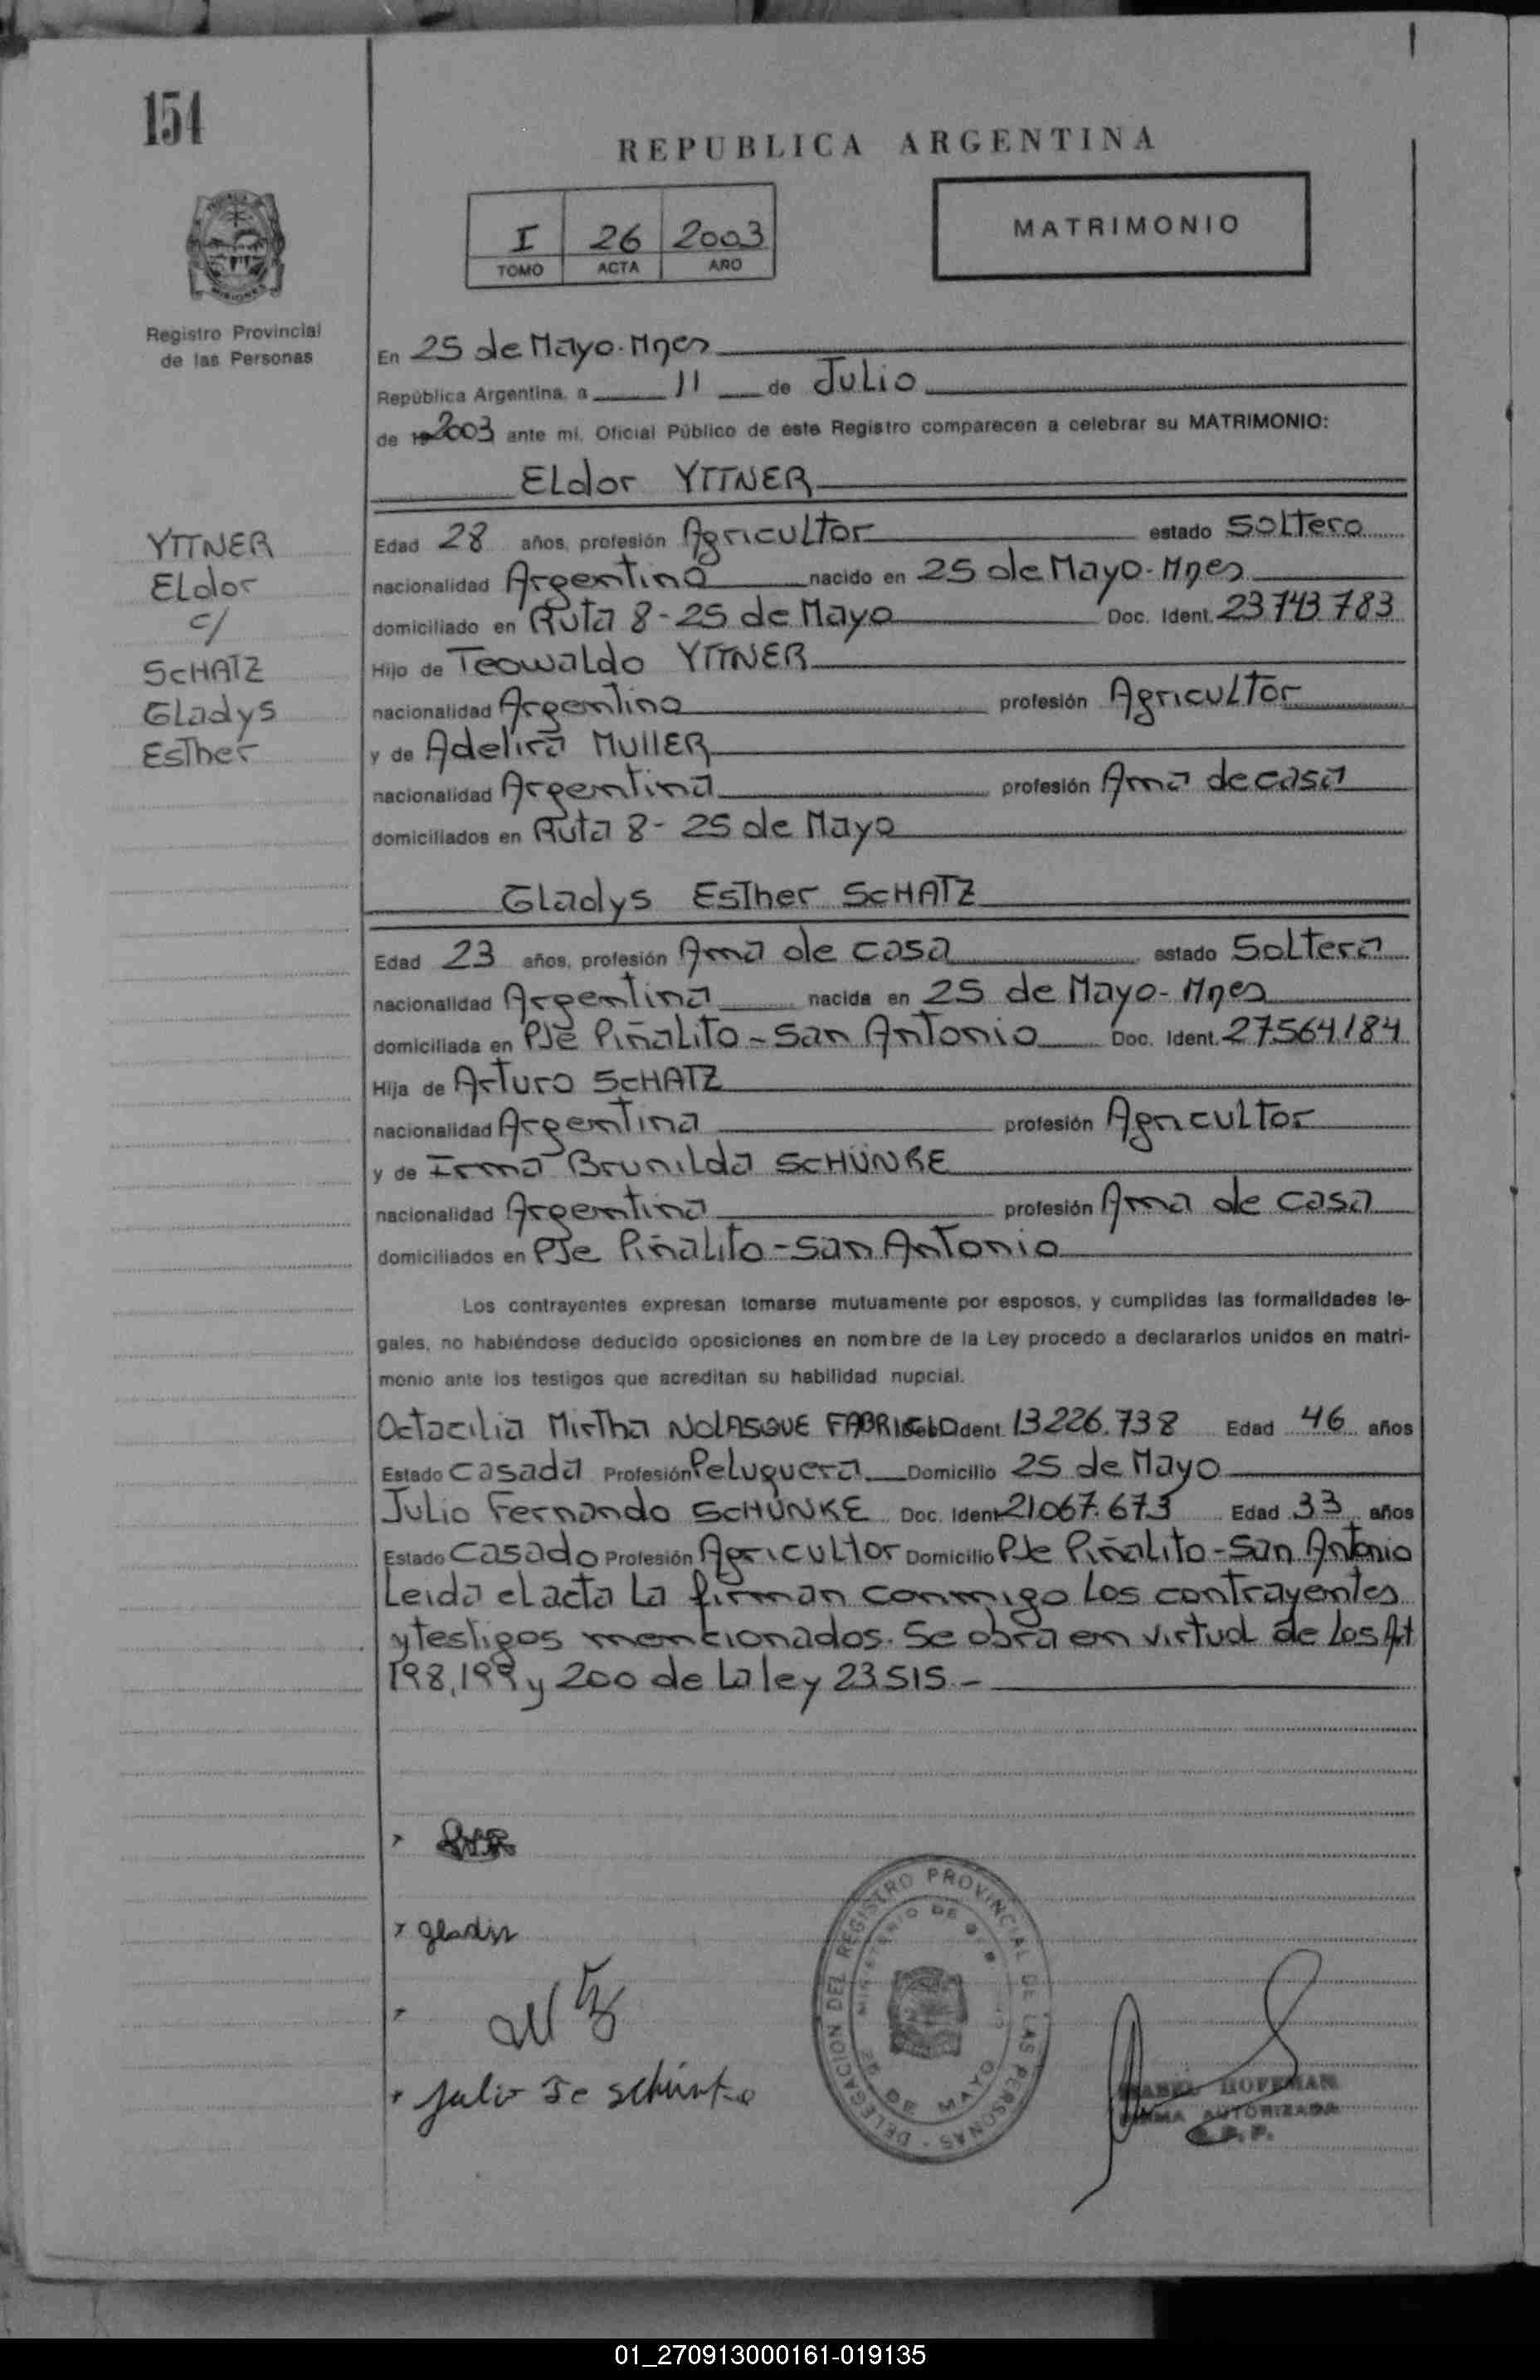 154
REPUBLICA ARGENTINA
I 26 2003
TOMO ACTA AÑO
MATRIMONIO
Registro Provincial
de las Personas
En 25 de Mayo-Mnes
República Argentina, a 11 de Julio
de 19 2003 ante mí, Oficial Público de este Registro comparecen a celebrar su MATRIMONIO:
ELdor YTTNER
YTTNER
ELdor
c/
SCHATZ
GLadys
Esther
Edad 28 años, profesión Agricultor estado Soltero
nacionalidad Argentina nacido en 25 de Mayo-Mnes
domiciliado en Ruta 8-25 de Mayo Doc. Ident. 23.743.783
Hijo de Teowaldo YTTNER
nacionalidad Argentina profesión Agricultor
y de Adelira MULLER
nacionalidad Argentina profesión Ama de casa
domiciliados en Ruta 8-25 de Mayo
GLadys Esther SCHATZ
Edad 23 años, profesión Ama de casa estado Soltera
nacionalidad Argentina nacida en 25 de Mayo-Mnes
domiciliada en PJe Piñalito-San Antonio Doc. Ident. 27.564.184
Hija de Arturo SCHATZ
nacionalidad Argentina profesión Agricultor
y de Irma Brunilda SCHÜNKE
nacionalidad Argentina profesión Ama de casa
domiciliados en PJe Piñalito-San Antonio
Los contrayentes expresan tomarse mutuamente por esposos, y cumplidas las formalidades le-
gales, no habiéndose deducido oposiciones en nombre de la Ley procedo a declararlos unidos en matri-
monio ante los testigos que acreditan su habilidad nupcial.
Octacilia Mirtha NOLASQUE Ident. 13.226.738 Edad 46 años
Estado Casada Profesión Peluquera Domicilio 25 de Mayo
Julio Fernando SCHÜNKE Doc. Ident. 21.067.673 Edad 33 años
Estado Casado Profesión Agricultor Domicilio PJe Piñalito-San Antonio
Leida el acta la firman conmigo los contrayentes
y testigos mencionados. Se obra en virtud de los Art
198, 199 y 200 de la ley 23.515.-
gladis
Julio Fe schünke
DELEGACION DEL REGISTRO PROVINCIAL DE LAS PERSONAS
MINISTERIO DE
25 DE MAYO
HOFFMAN
FIRMA AUTORIZADA
01_270913000161-019135